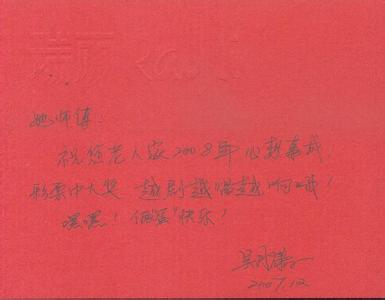 师傅:
祝您老人家2008年心想事成,
彩票中大奖 越剧越唱越
嘿嘿! 快乐!
2007.12